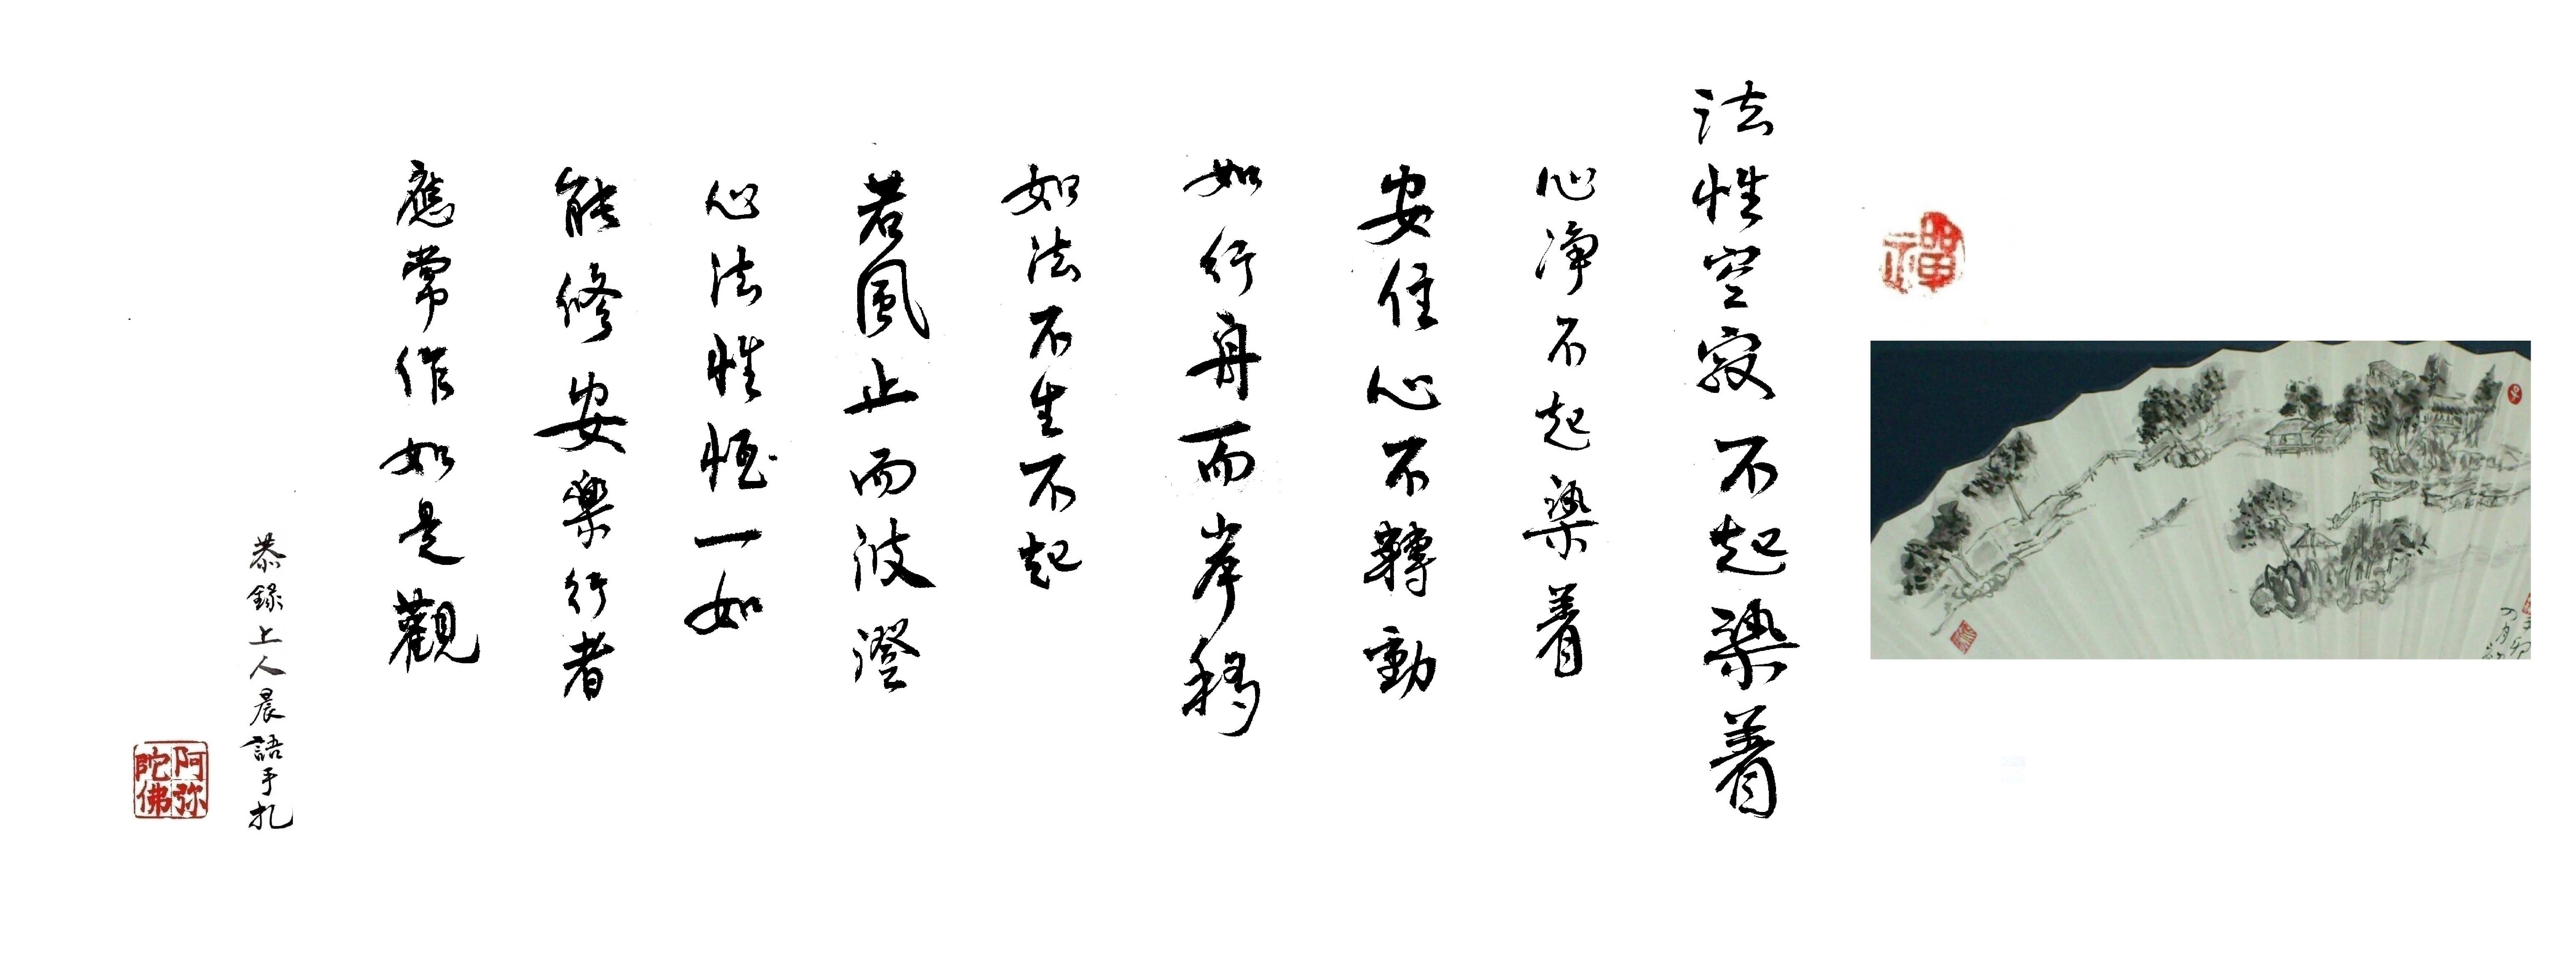 禪
法性空寂不起染着
心净不起染着
安住心不轉動
如行舟而岸移
如法不生不起
若風止而波澄
心法性恒一如
能修安樂行者
應常作如是觀
恭録上人晨語手札
阿弥陀佛